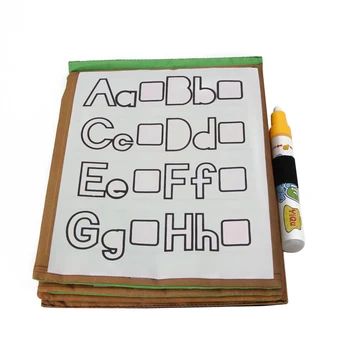 Aa Bb
Cc Dd
Ee Ff
Gg Hh